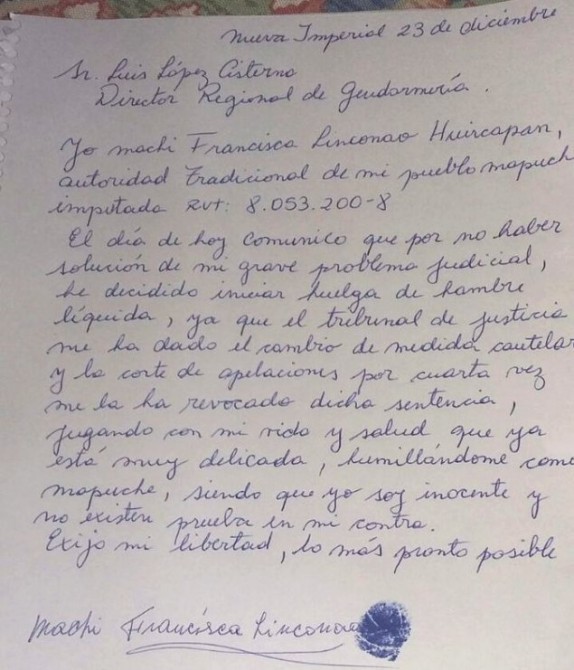 Nueva Imperial 23 de diciembre
Sr. Luis López Cisterna
Director Regional de Gendarmería.
Yo machi Francisca Linconao Huircapan,
autoridad Tradicional de mi pueblo mapuch
imputada RUT: 8.053.200-8
El día de hoy comunico que por no haber
solución de mi grave problema judicial,
he decidido iniciar huelga de hambre
líquida, ya que el tribunal de justicia
me ha dado el cambio de medida cautelar
y la corte de apelaciones por cuarta vez
me la ha revocado dicha sentencia,
jugando con mi vida y salud que ya
está muy delicada, humillándome como
mapuche, siendo que yo soy inocente y
no existen prueba en mi contra.
Exijo mi libertad, lo más pronto posible
Machi Francisca Linconao